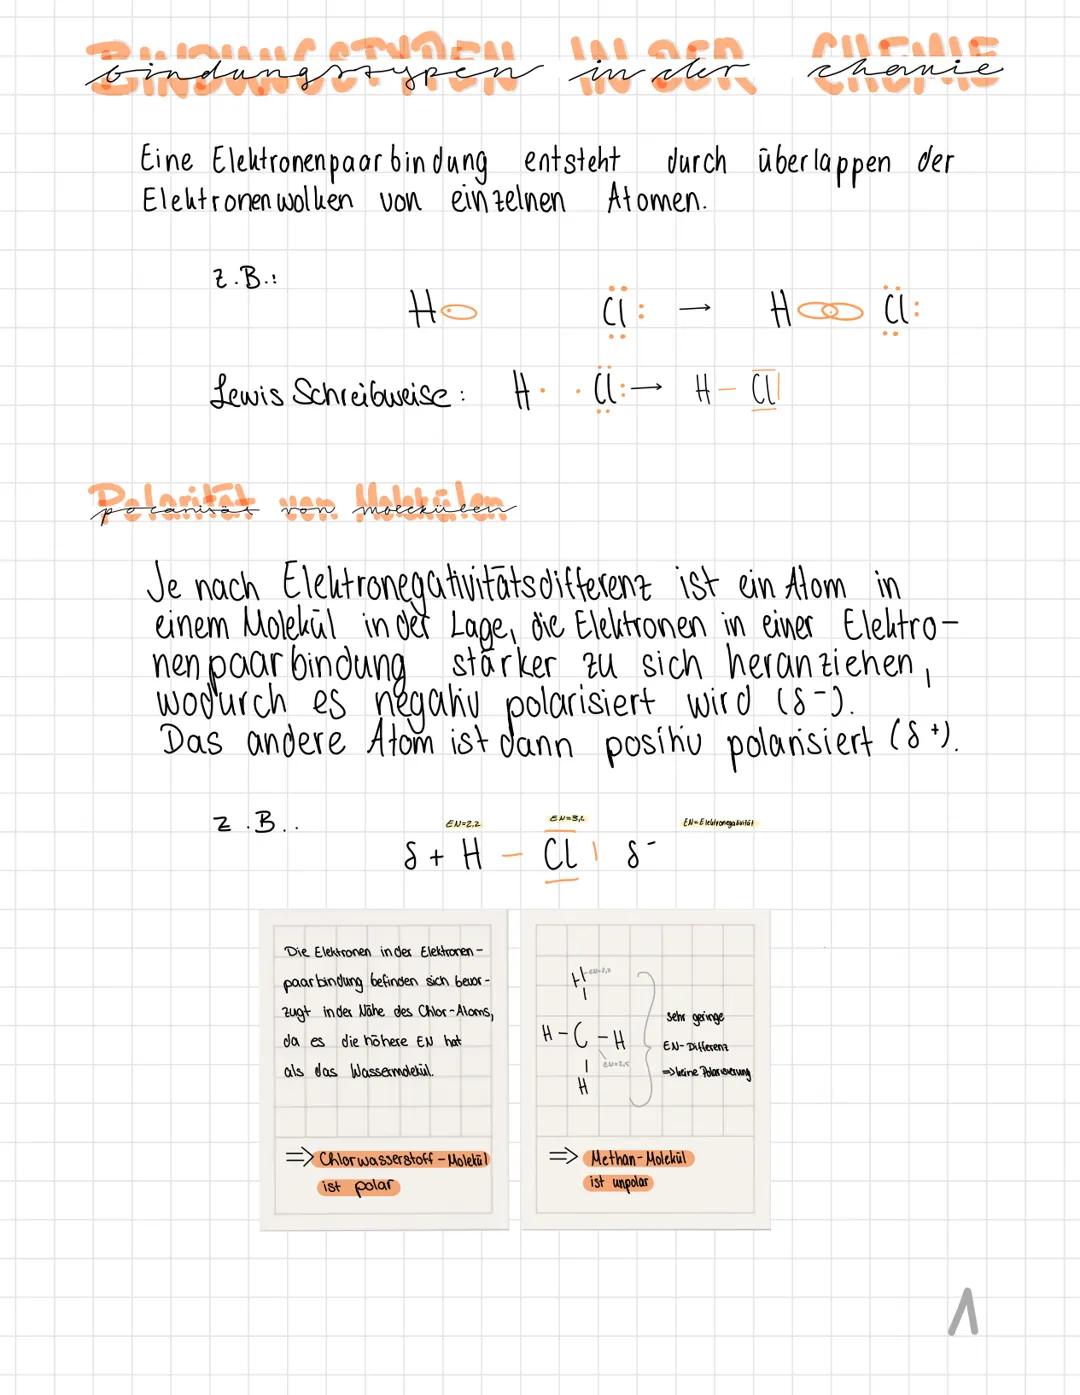 BINDUNGSTYPEN IN DER CHEMIE
bindungstypen in der chemie
Eine Elektronenpaarbindung entsteht durch überlappen der
Elektronenwolken von einzelnen Atomen.
z.B.:
H Cl: → H Cl:
Lewis Schreibweise: H· ·Cl: → H – Cl|
Polarität von Molekülen
polarität von molekülen
Je nach Elektronegativitätsdifferenz ist ein Atom in
einem Molekül in der Lage, die Elektronen in einer Elektro-
nenpaarbindung stärker zu sich heranziehen,
wodurch es negativ polarisiert wird (δ-).
Das andere Atom ist dann positiv polarisiert (δ+).
z.B..
EN=2,2 EN=3,2 EN=Elektronegativität
δ+ H – Cl | δ-
Die Elektronen in der Elektronen-
paarbindung befinden sich bevor-
zugt in der Nähe des Chlor-Atoms,
da es die höhere EN hat
als das Wassermolekül.
=> Chlorwasserstoff-Molekül
ist polar
H EN=2,2
|
H – C – H
EN=2,5
|
H
sehr geringe
EN-Differenz
=> keine Polarisierung
=> Methan-Molekül
ist unpolar
1